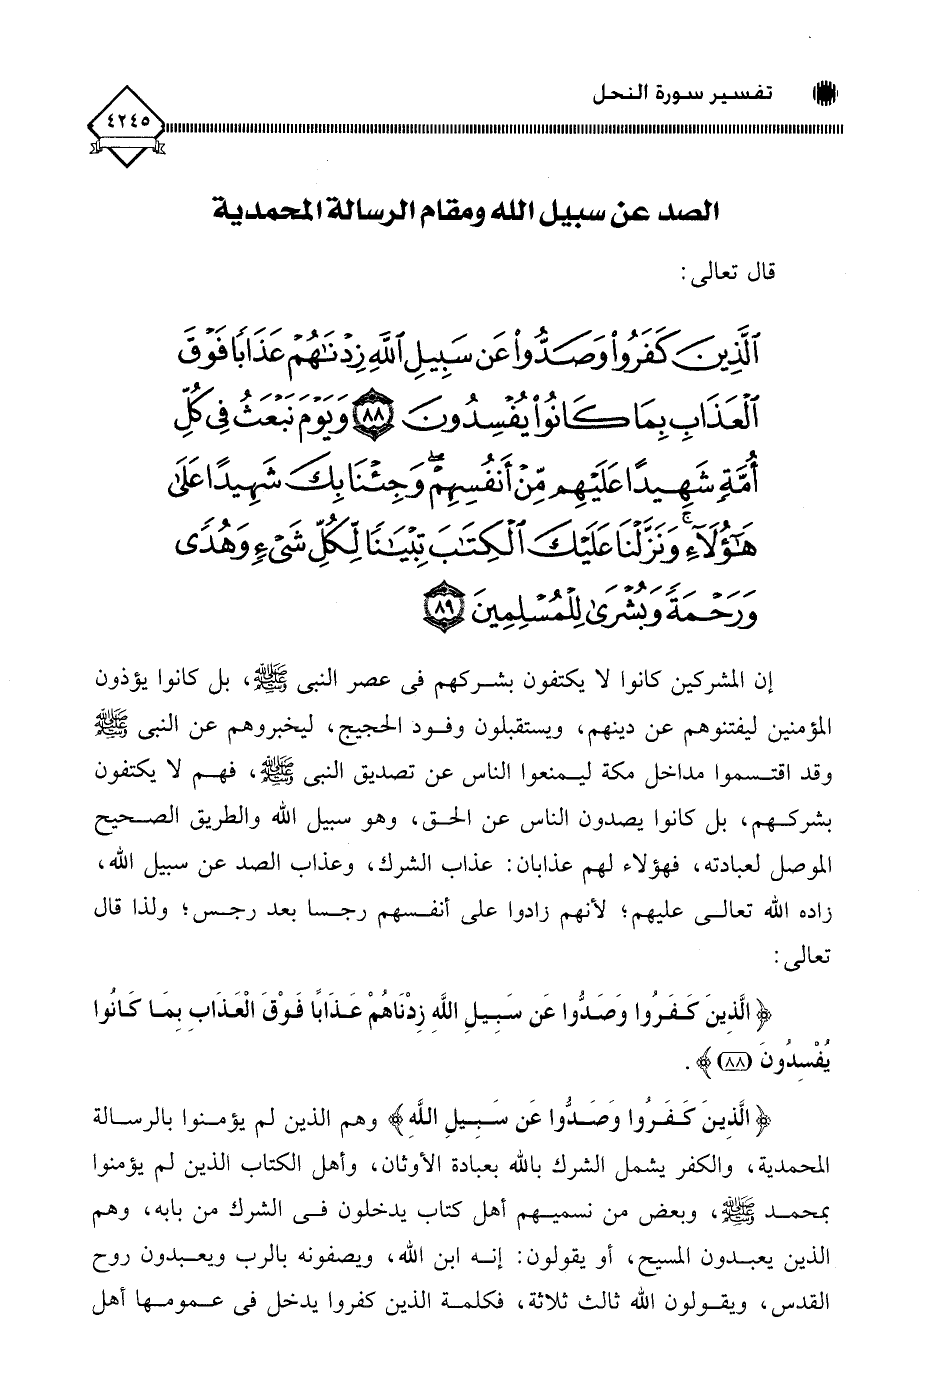 تفسير سورة النحل
٤٢٤٥
الصد عن سبيل الله ومقام الرسالة المحمدية
قال تعالى:
ٱلَّذِينَ كَفَرُواْ وَصَدُّواْ عَن سَبِيلِ ٱللَّهِ زِدْنَٰهُمْ عَذَابًا فَوْقَ
ٱلْعَذَابِ بِمَا كَانُواْ يُفْسِدُونَ ٨٨ وَيَوْمَ نَبْعَثُ فِى كُلِّ
أُمَّةٍ شَهِيدًا عَلَيْهِم مِّنْ أَنفُسِهِمْ ۖ وَجِئْنَا بِكَ شَهِيدًا عَلَىٰ
هَٰٓؤُلَآءِ ۚ وَنَزَّلْنَا عَلَيْكَ ٱلْكِتَٰبَ تِبْيَٰنًا لِّكُلِّ شَىْءٍ وَهُدًى
وَرَحْمَةً وَبُشْرَىٰ لِلْمُسْلِمِينَ ٨٩
إن المشركين كانوا لا يكتفون بشركهم فى عصر النبى ﷺ، بل كانوا يؤذون
المؤمنين ليفتنوهم عن دينهم، ويستقبلون وفود الحجيج، ليخبروهم عن النبى ﷺ
وقد اقتسموا مداخل مكة ليمنعوا الناس عن تصديق النبى ﷺ، فهم لا يكتفون
بشركهم، بل كانوا يصدون الناس عن الحق، وهو سبيل الله والطريق الصحيح
الموصل لعبادته، فهؤلاء لهم عذابان: عذاب الشرك، وعذاب الصد عن سبيل الله،
زاده الله تعالى عليهم؛ لأنهم زادوا على أنفسهم رجسا بعد رجس؛ ولذا قال
تعالى:
﴿الَّذِينَ كَفَرُوا وَصَدُّوا عَن سَبِيلِ اللَّهِ زِدْنَاهُمْ عَذَابًا فَوْقَ الْعَذَابِ بِمَا كَانُوا
يُفْسِدُونَ (٨٨)﴾.
﴿الَّذِينَ كَفَرُوا وَصَدُّوا عَن سَبِيلِ اللَّهِ﴾ وهم الذين لم يؤمنوا بالرسالة
المحمدية، والكفر يشمل الشرك بالله بعبادة الأوثان، وأهل الكتاب الذين لم يؤمنوا
بمحمد ﷺ، وبعض من نسميهم أهل كتاب يدخلون فى الشرك من بابه، وهم
الذين يعبدون المسيح، أو يقولون: إنه ابن الله، ويصفونه بالرب ويعبدون روح
القدس، ويقولون الله ثالث ثلاثة، فكلمة الذين كفروا يدخل فى عمومها أهل